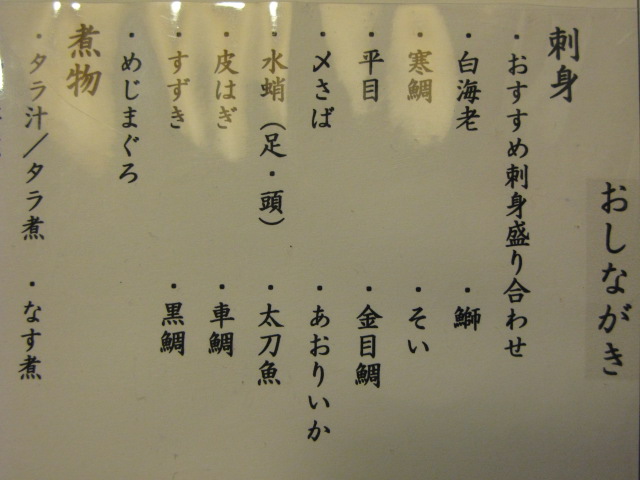 おしながき
刺身
・おすすめ刺身盛り合わせ
・白海老　・鰤
・寒鯛　・そい
・平目　・金目鯛
・〆さば　・あおりいか
・水蛸（足・頭）　・太刀魚
・皮はぎ　・車鯛
・すずき　・黒鯛
・めじまぐろ
煮物
・タラ汁／タラ煮　・なす煮